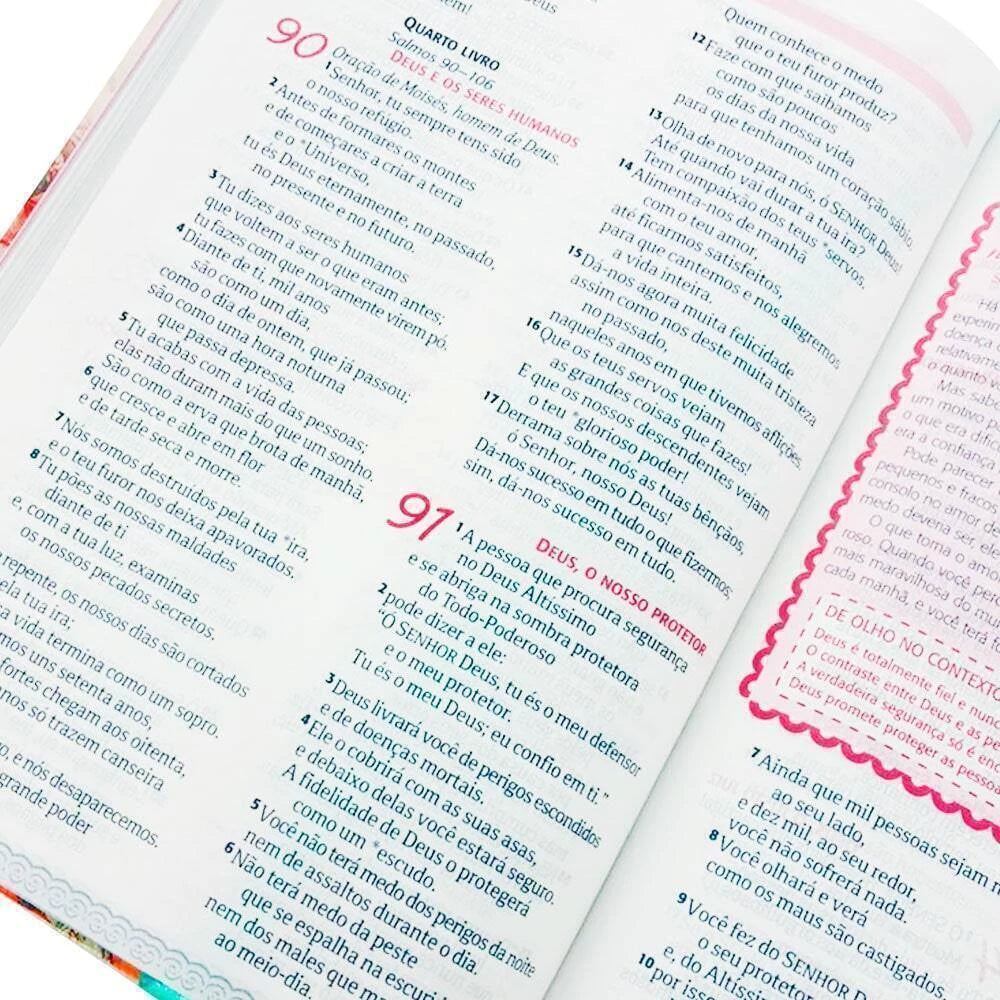 Deus
tem!
QUARTO LIVRO
Salmos 90–106
DEUS E OS SERES HUMANOS
90
Oração de Moisés, homem de Deus.
1 Senhor, tu sempre tens sido
o nosso refúgio.
2 Antes de formares os montes
e de começares a criar a terra
e o *Universo,
tu és Deus eternamente, no passado,
no presente e no futuro.
3 Tu dizes aos seres humanos
que voltem a ser o que eram antes;
tu fazes com que novamente virem pó.
4 Diante de ti, mil anos
são como um dia,
como o dia de ontem, que já passou;
são como uma hora noturna
que passa depressa.
5 Tu acabas com a vida das pessoas;
elas não duram mais do que um sonho.
São como a erva que brota de manhã,
6 que cresce e abre em flor
e de tarde seca e morre.
7 Nós somos destruídos pela tua *ira,
e o teu furor nos deixa apavorados.
8 Tu pões as nossas maldades
diante de ti
e, com a tua luz, examinas
os nossos pecados secretos.
repente, os nossos dias são cortados
pela tua ira;
a vida termina como um sopro.
uns setenta anos,
fortes chegam aos oitenta,
anos só trazem canseira
e nós desaparecemos.
grande poder
Quem conhece o medo
que o teu furor produz?
12 Faze com que saibamos
como são poucos
os dias da nossa vida
para que tenhamos um coração sábio.
13 Olha de novo para nós, ó SENHOR Deus!
Até quando vai durar a tua ira?
Tem compaixão dos teus *servos.
14 Alimenta-nos de manhã
com o teu amor,
até ficarmos satisfeitos,
para que cantemos e nos alegremos
a vida inteira.
15 Dá-nos agora muita felicidade
assim como nos deste muita tristeza
no passado,
naqueles anos em que tivemos aflições.
16 Que os teus servos vejam
as grandes coisas que fazes!
E que os nossos descendentes vejam
o teu *glorioso poder!
17 Derrama sobre nós as tuas bênçãos,
ó Senhor, nosso Deus!
Dá-nos sucesso em tudo o que fizermos;
sim, dá-nos sucesso em tudo.
DEUS, O NOSSO PROTETOR
91
1 A pessoa que procura segurança
no Deus Altíssimo
e se abriga na sombra protetora
do Todo-Poderoso
2 pode dizer a ele:
"Ó SENHOR Deus, tu és o meu defensor
e o meu protetor.
Tu és o meu Deus; eu confio em ti."
3 Deus livrará você de perigos escondidos
e de doenças mortais.
4 Ele o cobrirá com as suas asas,
e debaixo delas você estará seguro.
A fidelidade de Deus o protegerá
como um *escudo.
5 Você não terá medo dos perigos da noite
nem de assaltos durante o dia.
6 Não terá medo da peste
que se espalha na escuridão
nem dos males que
ao meio-dia.
doença
relativam
o quanto v
Mas sab
um motivo p
que era difíc
era a confiança
Pode parecer
pequenos e fracos
consolo no amor de
medo deveria ser, ele
O que torna o amo
roso. Quando você per
mais maravilhosa do mu
cada manhã, e você terá f
DE OLHO NO CONTEXTO
Deus é totalmente fiel e nunc
O contraste entre Deus e as pe
A verdadeira segurança só é enc
Deus promete proteger as pessoa
7 Ainda que mil pessoas sejam m
ao seu lado,
e dez mil, ao seu redor,
você não sofrerá nada.
8 Você olhará e verá
como os maus são castigados.
9 Você fez do SENHOR D
o seu protetor
e, do Altíssim
10 por isso